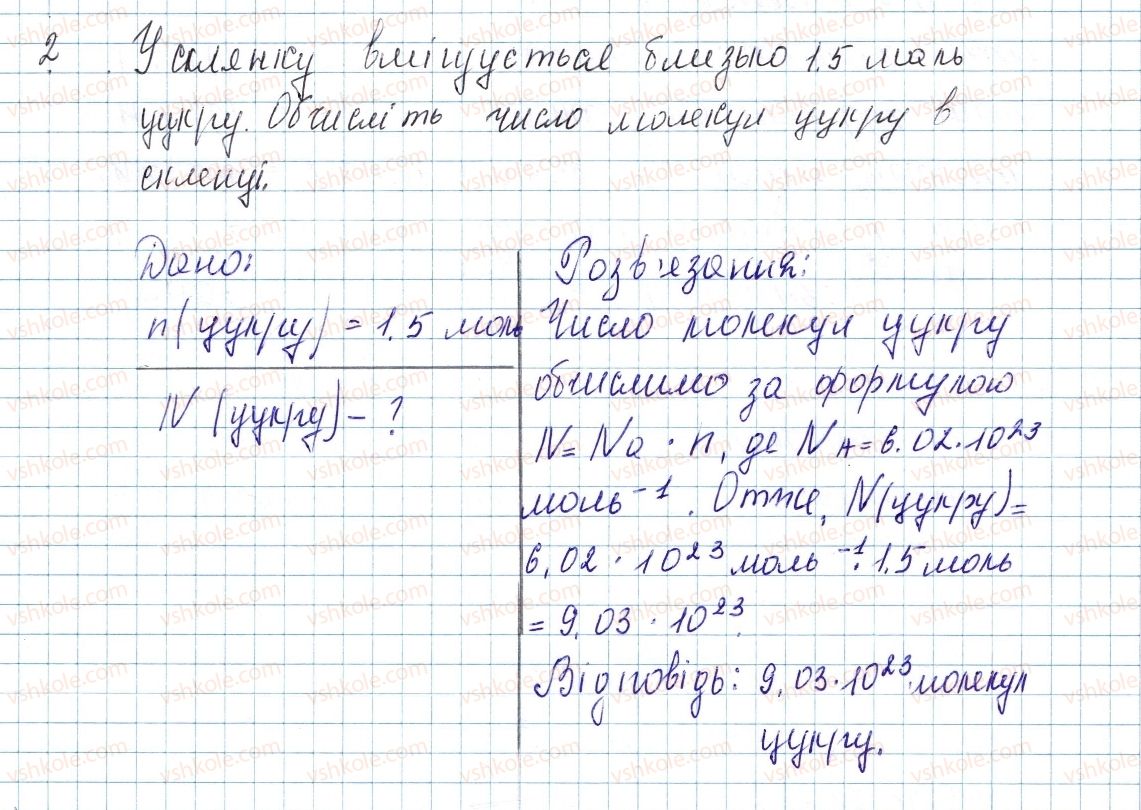 2. У склянку вміщується близько 1,5 моль
цукру. Обчисліть число молекул цукру в
склянці.
Дано:
n(цукру) = 1,5 моль
N (цукру) - ?
Розв'язання:
Число молекул цукру
обчислимо за формулою
N = Na · n, де NA = 6.02·10²³
моль⁻¹. Отже, N(цукру) =
6,02 · 10²³ моль⁻¹ · 1,5 моль
= 9,03 · 10²³.
Відповідь: 9,03·10²³ молекул
цукру.